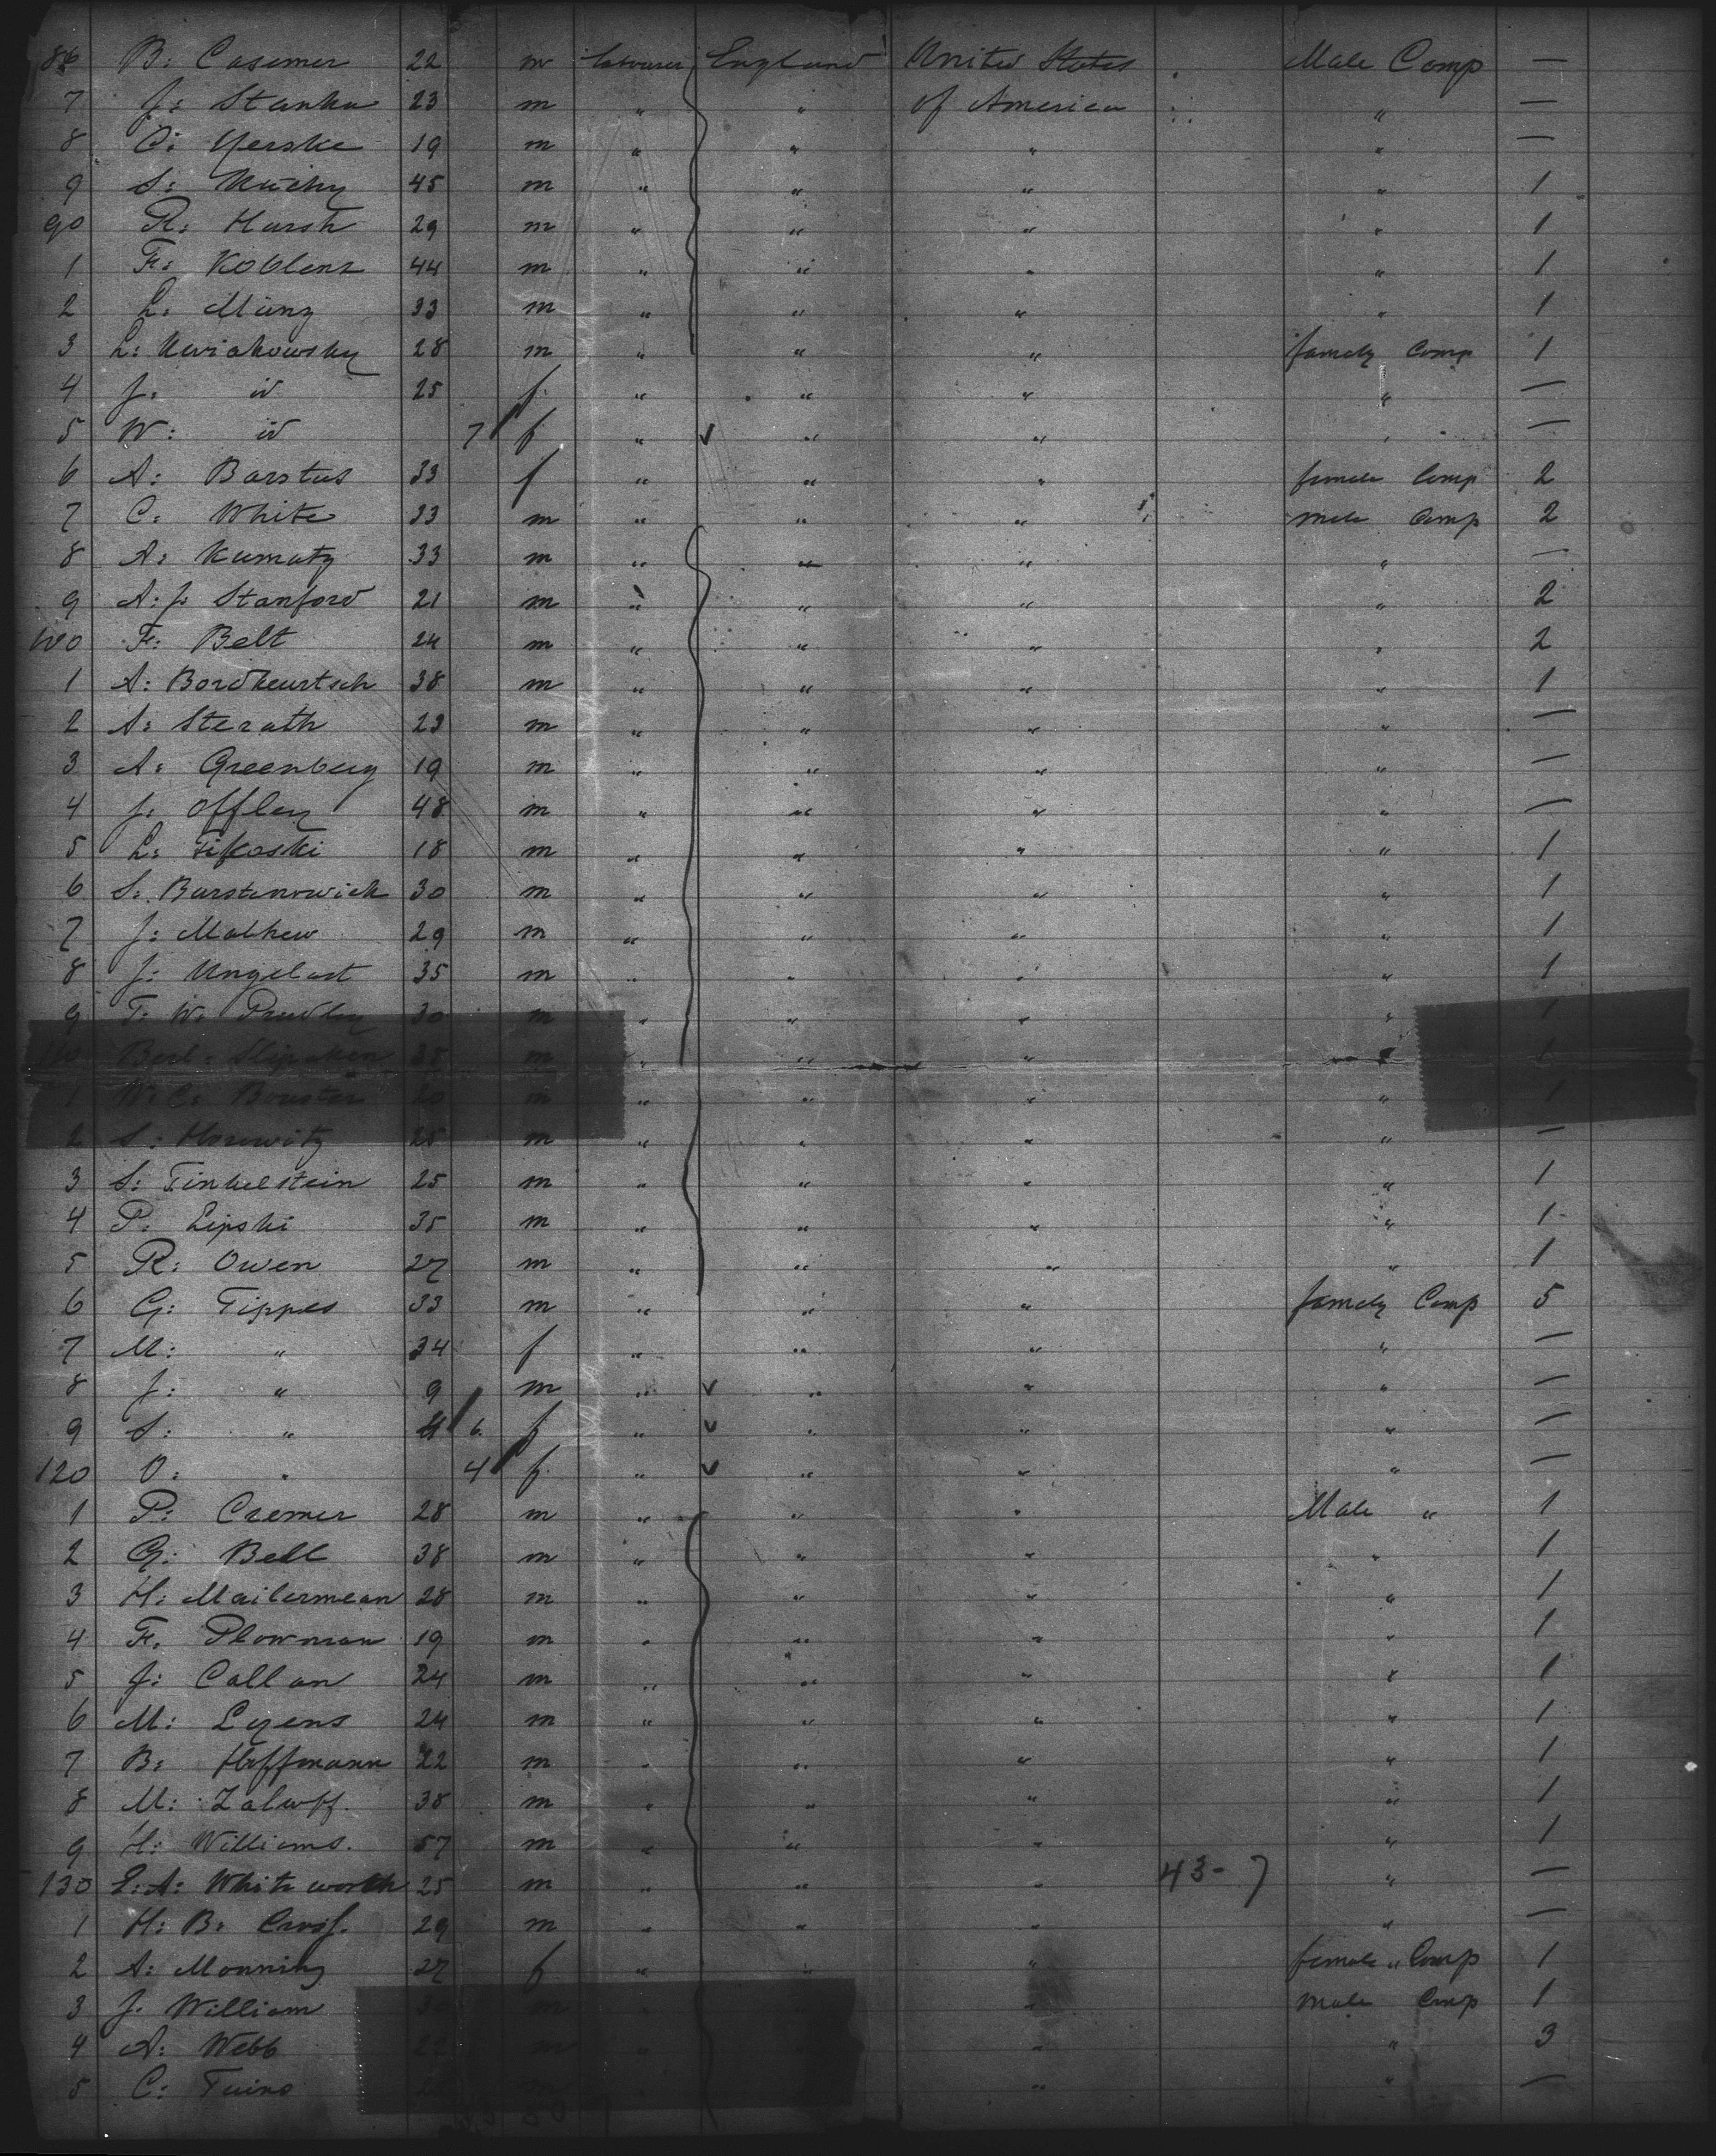 86 B: Casemer 22 m labourer England United States Male Comp —
7 J: Stanka 23 m " " of America " —
8 O: Yerske 19 m " " " " —
9 S: 45 m " " " " 1
90 R: Harsh 29 m " " " " 1
1 F: Koblenz 44 m " " " " 1
2 L: Münz 33 m " " " " 1
3 L: 28 m " " " famely Comp 1
4 J: id 25 f " " " " —
5 W: id 7 f " " " " —
6 A: Barstus 33 f " " " female Comp 2
7 C: White 33 m " " " male Comp 2
8 A: Kumatz 33 m " " " " —
9 A: J: Stanford 21 m " " " " 2
100 F: Belt 24 m " " " " 2
1 A: Bordkeurtsch 38 m " " " " 1
2 A: Sterath 23 m " " " " —
3 A: Greenberg 19 m " " " " —
4 J: Offley 48 m " " " " —
5 L: 18 m " " " " 1
6 S: Burstenowich 30 m " " " " 1
7 J: Mathew 29 m " " " " 1
8 J: Ungelast 35 m " " " " 1
9 T: W: 30 m " " " " 1
110 Berl: 38 m " " " " 1
1 W: C: 20 m " " " " 1
2 S: Horewitz 25 m " " " " —
3 S: Finkelstein 25 m " " " " 1
4 P: Lipski 35 m " " " " 1
5 R: Owen 27 m " " " " 1
6 G: Tippes 33 m " " " famely Comp 5
7 M: " 34 f " " " " —
8 J: " 9 m " " " " —
9 S: " 6 f " " " " —
120 O: " 4 f " " " " —
1 P: Cremer 28 m " " " Male " 1
2 G: Bell 38 m " " " " 1
3 H: Mailermean 28 m " " " " 1
4 F: Plowman 19 m " " " " 1
5 J: Callan 24 m " " " " 1
6 M: Lyens 24 m " " " " 1
7 B: Hoffmann 22 m " " " " 1
8 M: Zalwff. 38 m " " " " 1
9 H: Williams. 57 m " " " " 1
130 E: A: Whitworth 25 m " " " 43-7 " —
1 H: B: 29 m " " " " —
2 A: Monning 27 f " " " female " Comp 1
3 J: William 30 m " " " male Comp 1
4 A: Webb 22 m " " " " 3
5 C: " " —